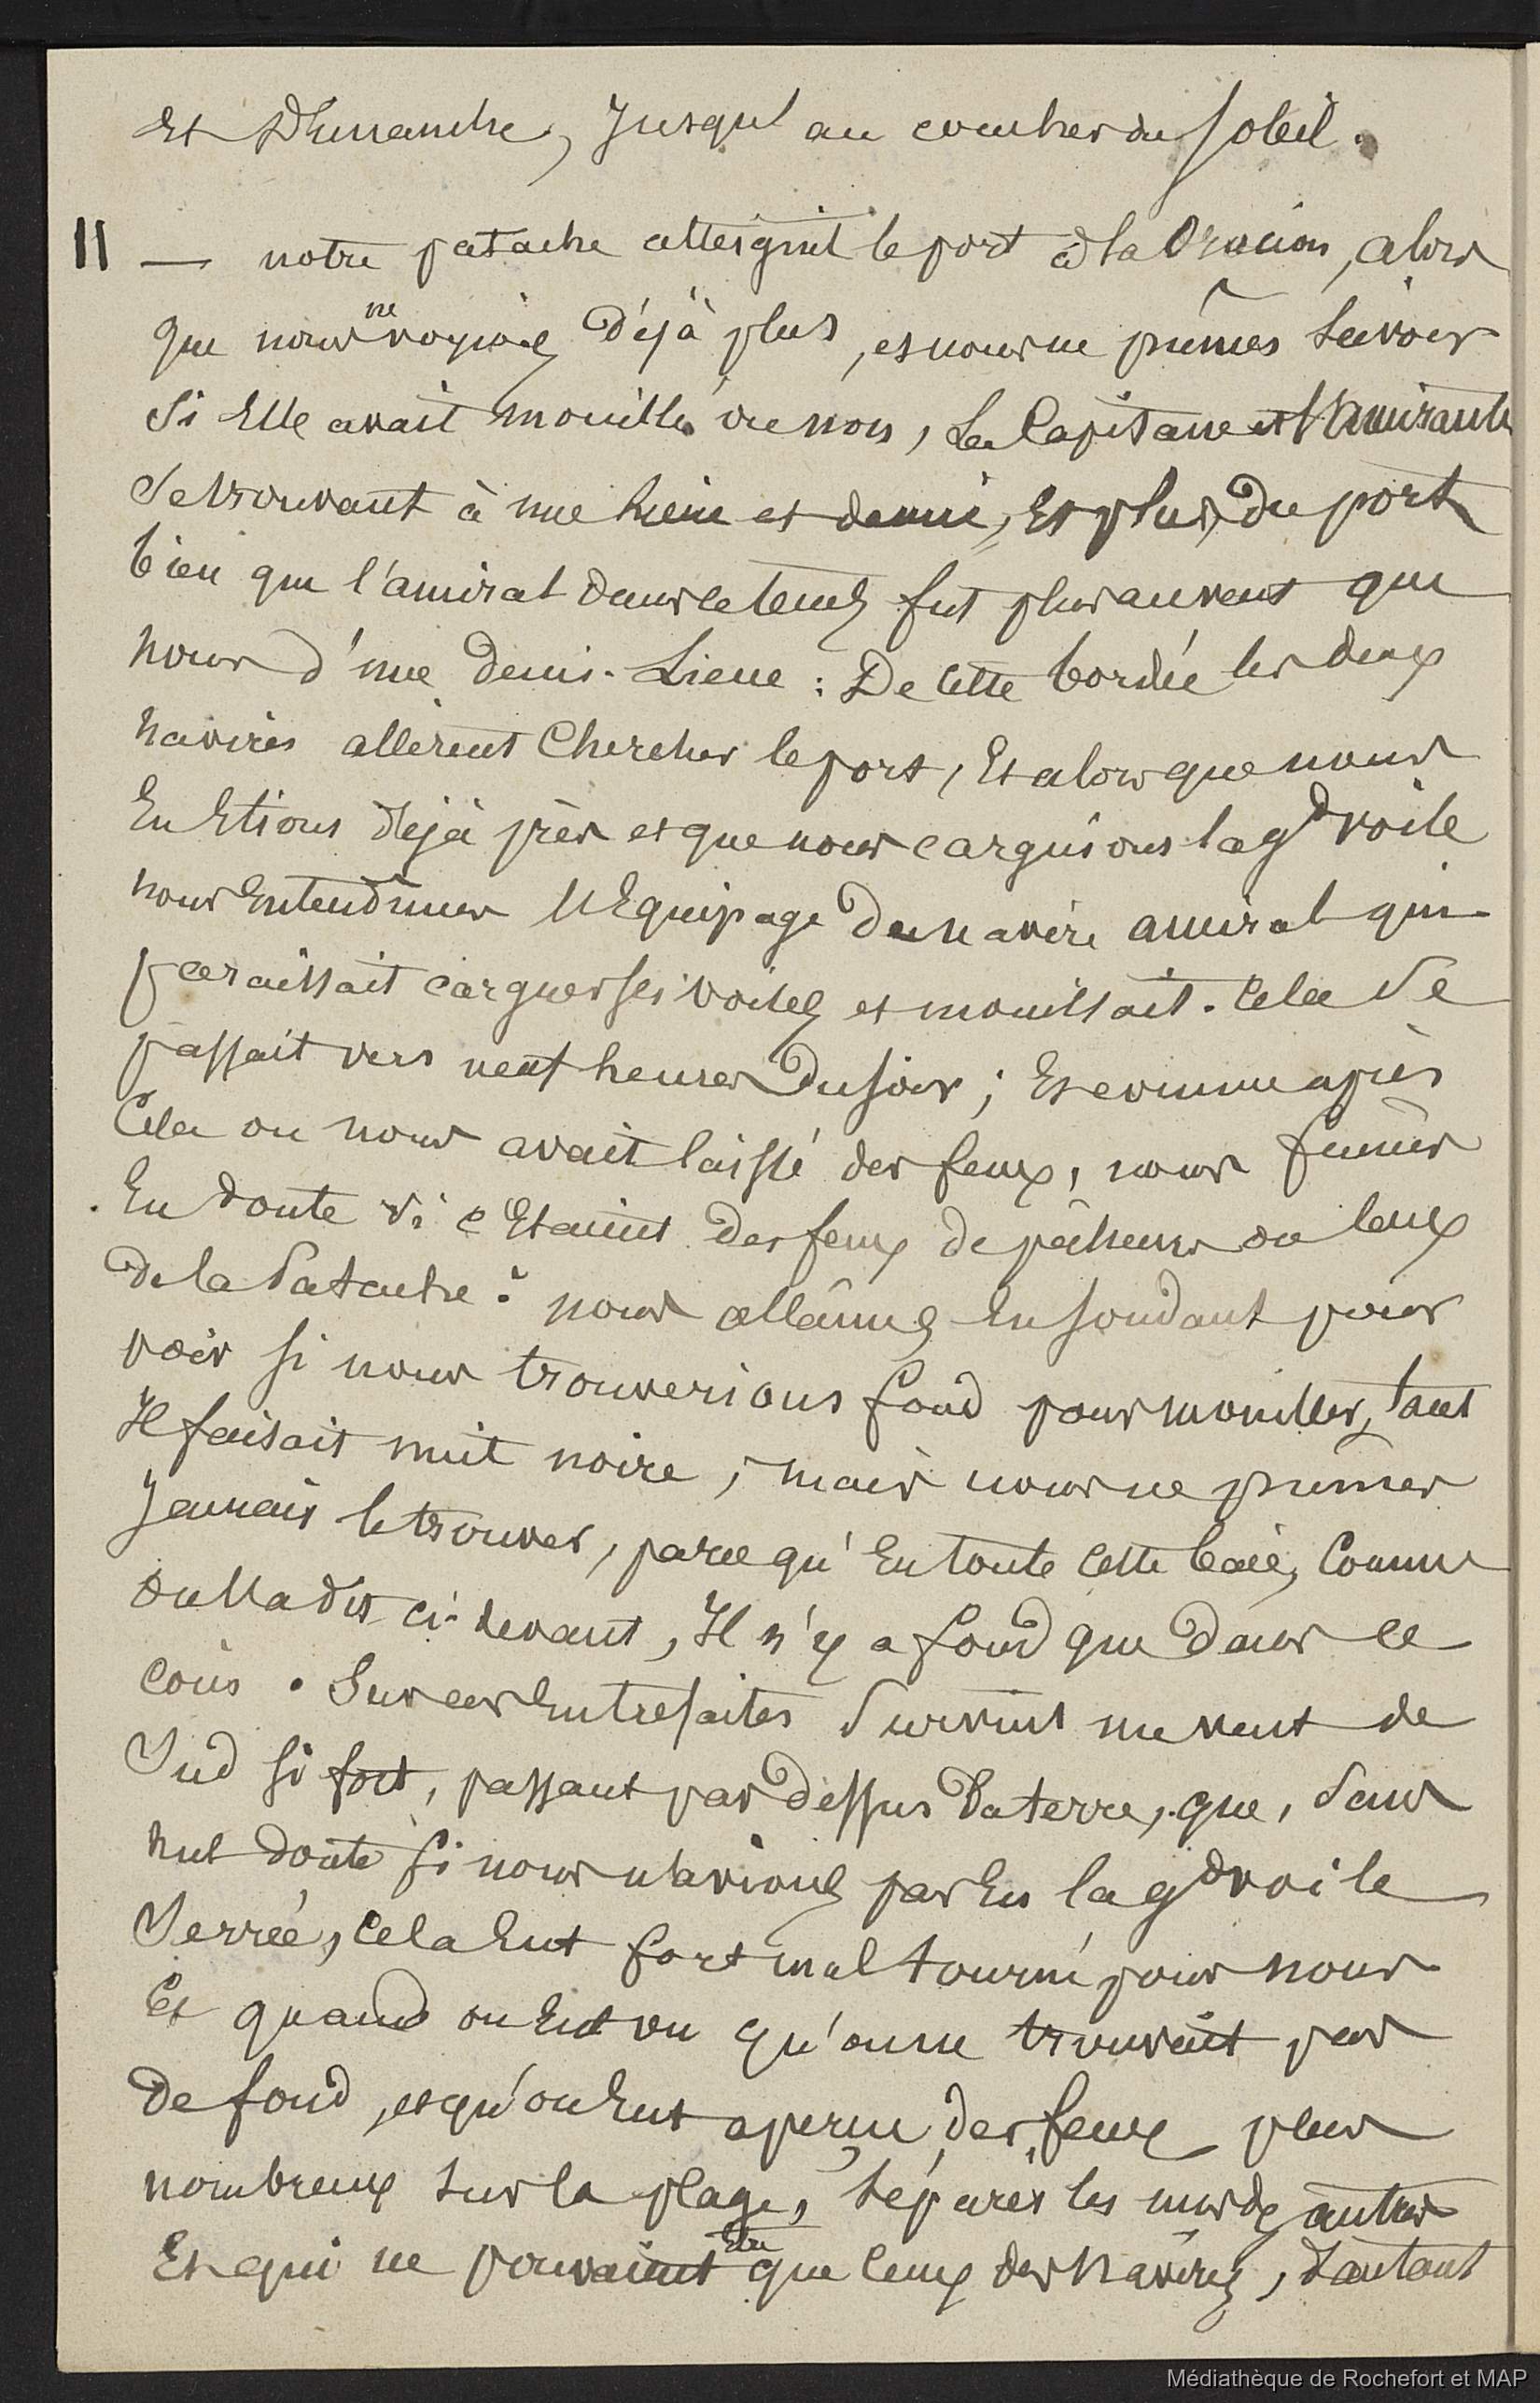 Et Dimanche, Jusqu'au coucher du soleil.
11 — notre patache atteignit le port à la Oracion, alors
que nous ne voyions déjà plus, et nous ne pûmes savoir
si Elle avait mouillé ou non, La Capitane et l'Amirante
se trouvant à une lieue et demie, Et plus, du port
bien que l'amiral dans ce temps fut plus au vent que
nous d'une demi-Lieue : De cette bordée les deux
navires allèrent Chercher le port, Et alors que nous
En Etions déjà près et que nous carguions la gde voile
nous Entendimes l'Equipage du navire amiral qui
paraissait carguer ses voiles et mouillait. Cela se
passait vers neuf heures du soir ; Et comme après
Cela on nous avait laissé des feux, nous fumes
En doute si c'Etaient des feux de pêcheurs ou ceux
de la Patache : nous allâmes En sondant pour
voir si nous trouverions fond pour mouiller, tant
Il faisait nuit noire, mais nous ne pûmes
Jamais le trouver, parce qu'En toute cette baie, Comme
on l'a dit ci-devant, Il n'y a fond que dans ce
coin. Sur ces Entrefaites survint un vent de
Sud si fort, passant par dessus la terre, que, sans
nul doute si nous n'avions pas Eu la gde voile
Serrée, cela Eut fort mal tourné pour nous
Et quand on Eut vu qu'on ne trouvait pas
de fond, et qu'on Eut aperçu des feux plus
nombreux sur la plage, séparés les uns des autres
Et qui ne pouvaient Etre que ceux des navires, d'autant
Médiathèque de Rochefort et MAP